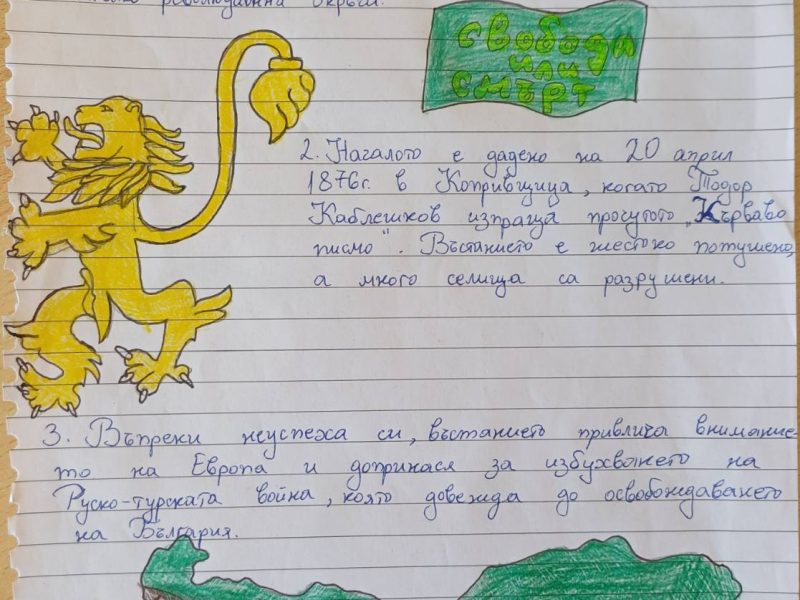 революционна окръг.
свобода
или
смърт
2. Началото е дадено на 20 април
1876г. в Копривщица, когато Тодор
Каблешков изпраща прочутото „Кърваво
писмо". Въстанието е жестоко потушено,
а много селища са разрушени.
3. Въпреки неуспеха си, въстанието привлича внимание-
то на Европа и допринася за избухването на
Руско-турската война, която довежда до освобождаването
на България.